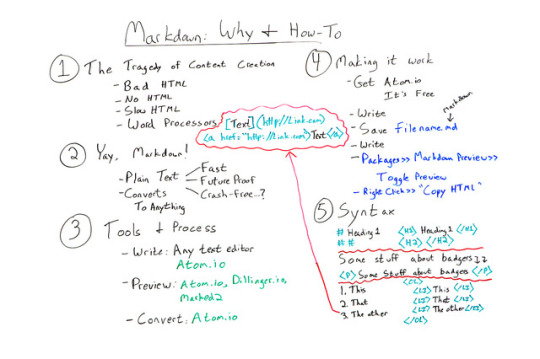 Markdown: Why + How-To
1 The Tragedy of Content Creation
- Bad HTML
- No HTML
- Slow HTML
- Word Processors
[Text](http://Link.com)
<a href="http://Link.com">Text</a>
2 Yay, Markdown!
- Plain Text
Fast
Future Proof
Crash-Free..?
- Converts
To Anything
3 Tools + Process
- Write: Any text editor
Atom.io
- Preview: Atom.io, Dillinger.io,
Marked2
- Convert: Atom.io
4 Making it work
- Get Atom.io
It's Free
markdown
- Write
- Save Filename.md
- Write
- Packages>> Markdown Preview>>
Toggle Preview
- Right Click>> "Copy HTML"
5 Syntax
# Heading 1 <H1> Heading 1 </H1>
## <H2> </H2>
Some stuff about badgers
<P> Some Stuff about badgers </P>
1. This
2. That
3. The other
<OL>
<LI> This </LI>
<LI> That </LI>
<LI> The other </LI>
</OL>